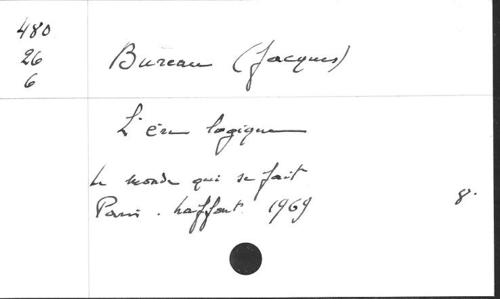 480
26
6
Bureau (Jacques)
L'ère logique
Le monde qui se fait
Paris. Laffont. 1969
8°